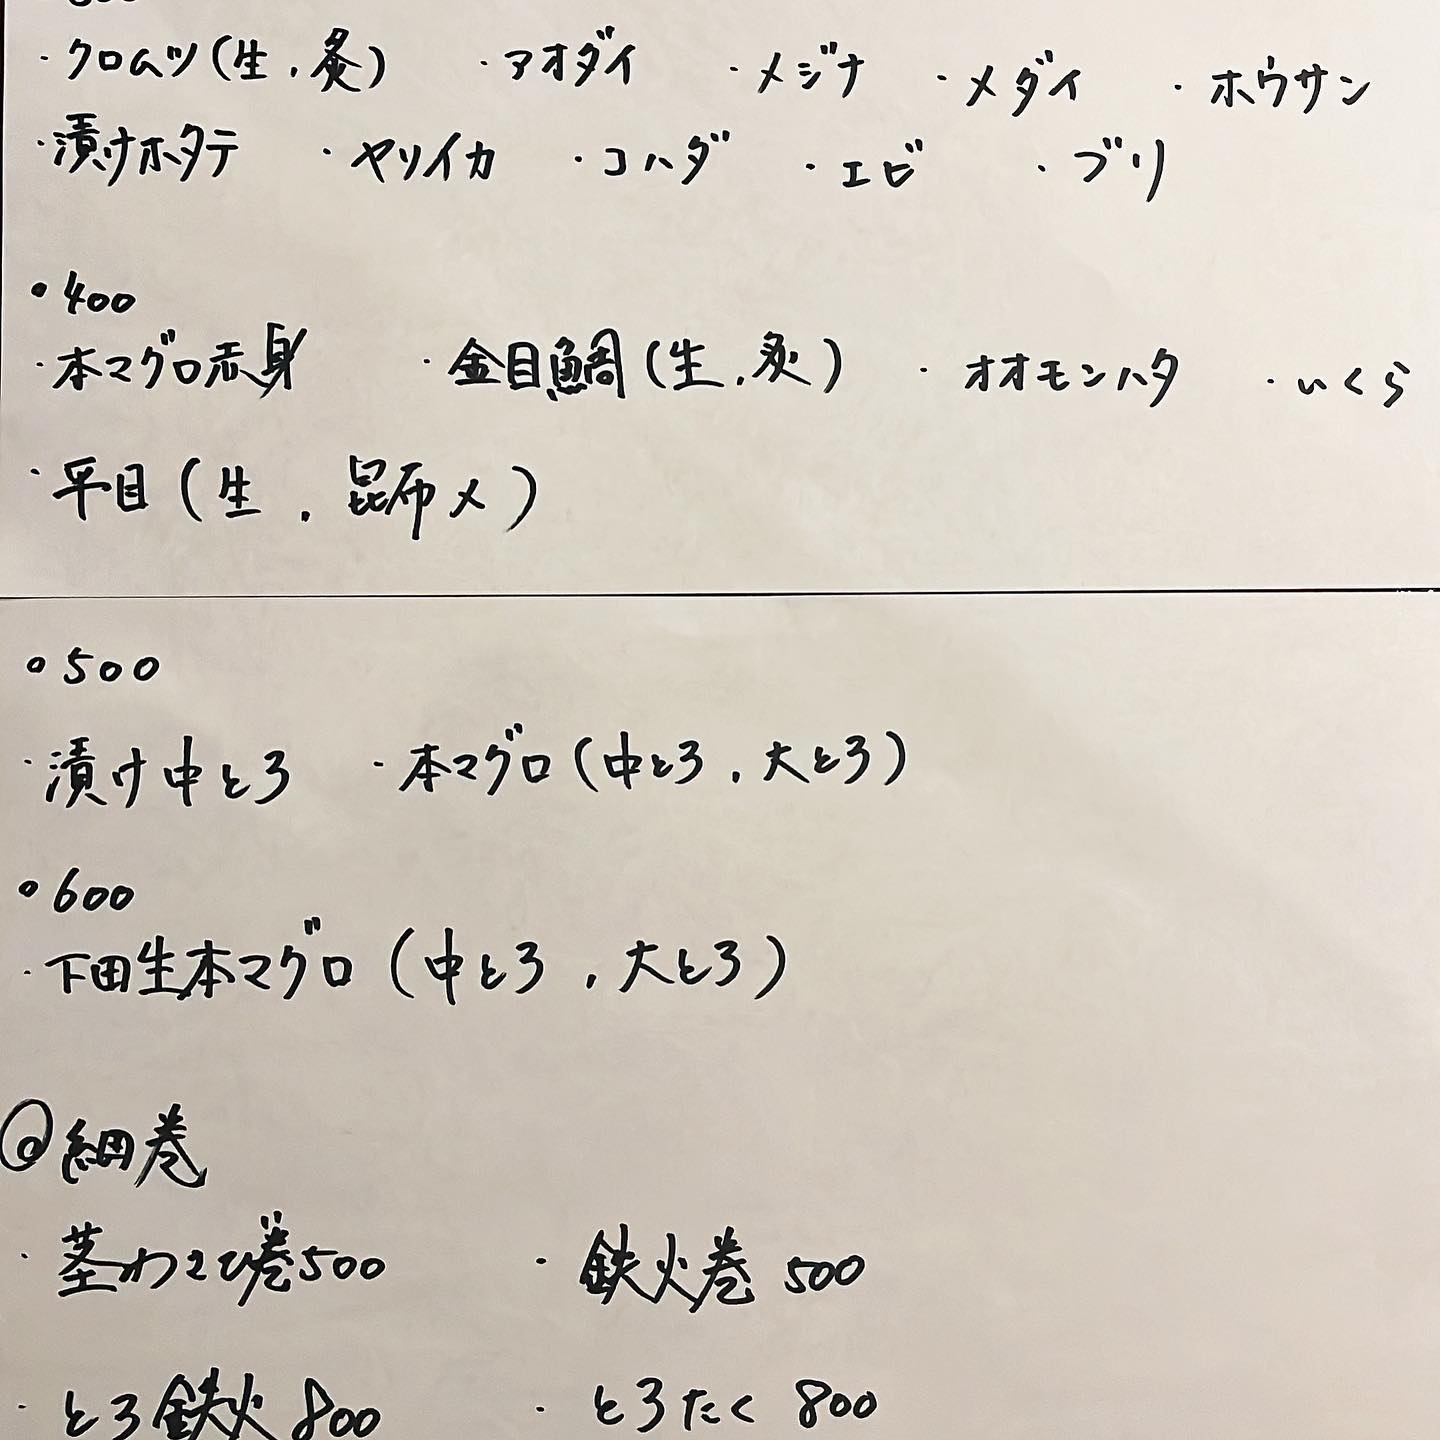 ・クロムツ(生,炙) ・アオダイ ・メジナ ・メダイ ・ホウサン
・漬けホタテ ・ヤリイカ ・コハダ ・エビ ・ブリ
・400
・本マグロ赤身 ・金目鯛(生,炙) ・オオモンハタ ・いくら
・平目(生,昆布〆)
○500
・漬け中とろ ・本マグロ(中とろ,大とろ)
○600
・下田生本マグロ(中とろ,大とろ)
◎細巻
・茎わさび巻500 ・鉄火巻 500
・とろ鉄火 800 ・とろたく 800